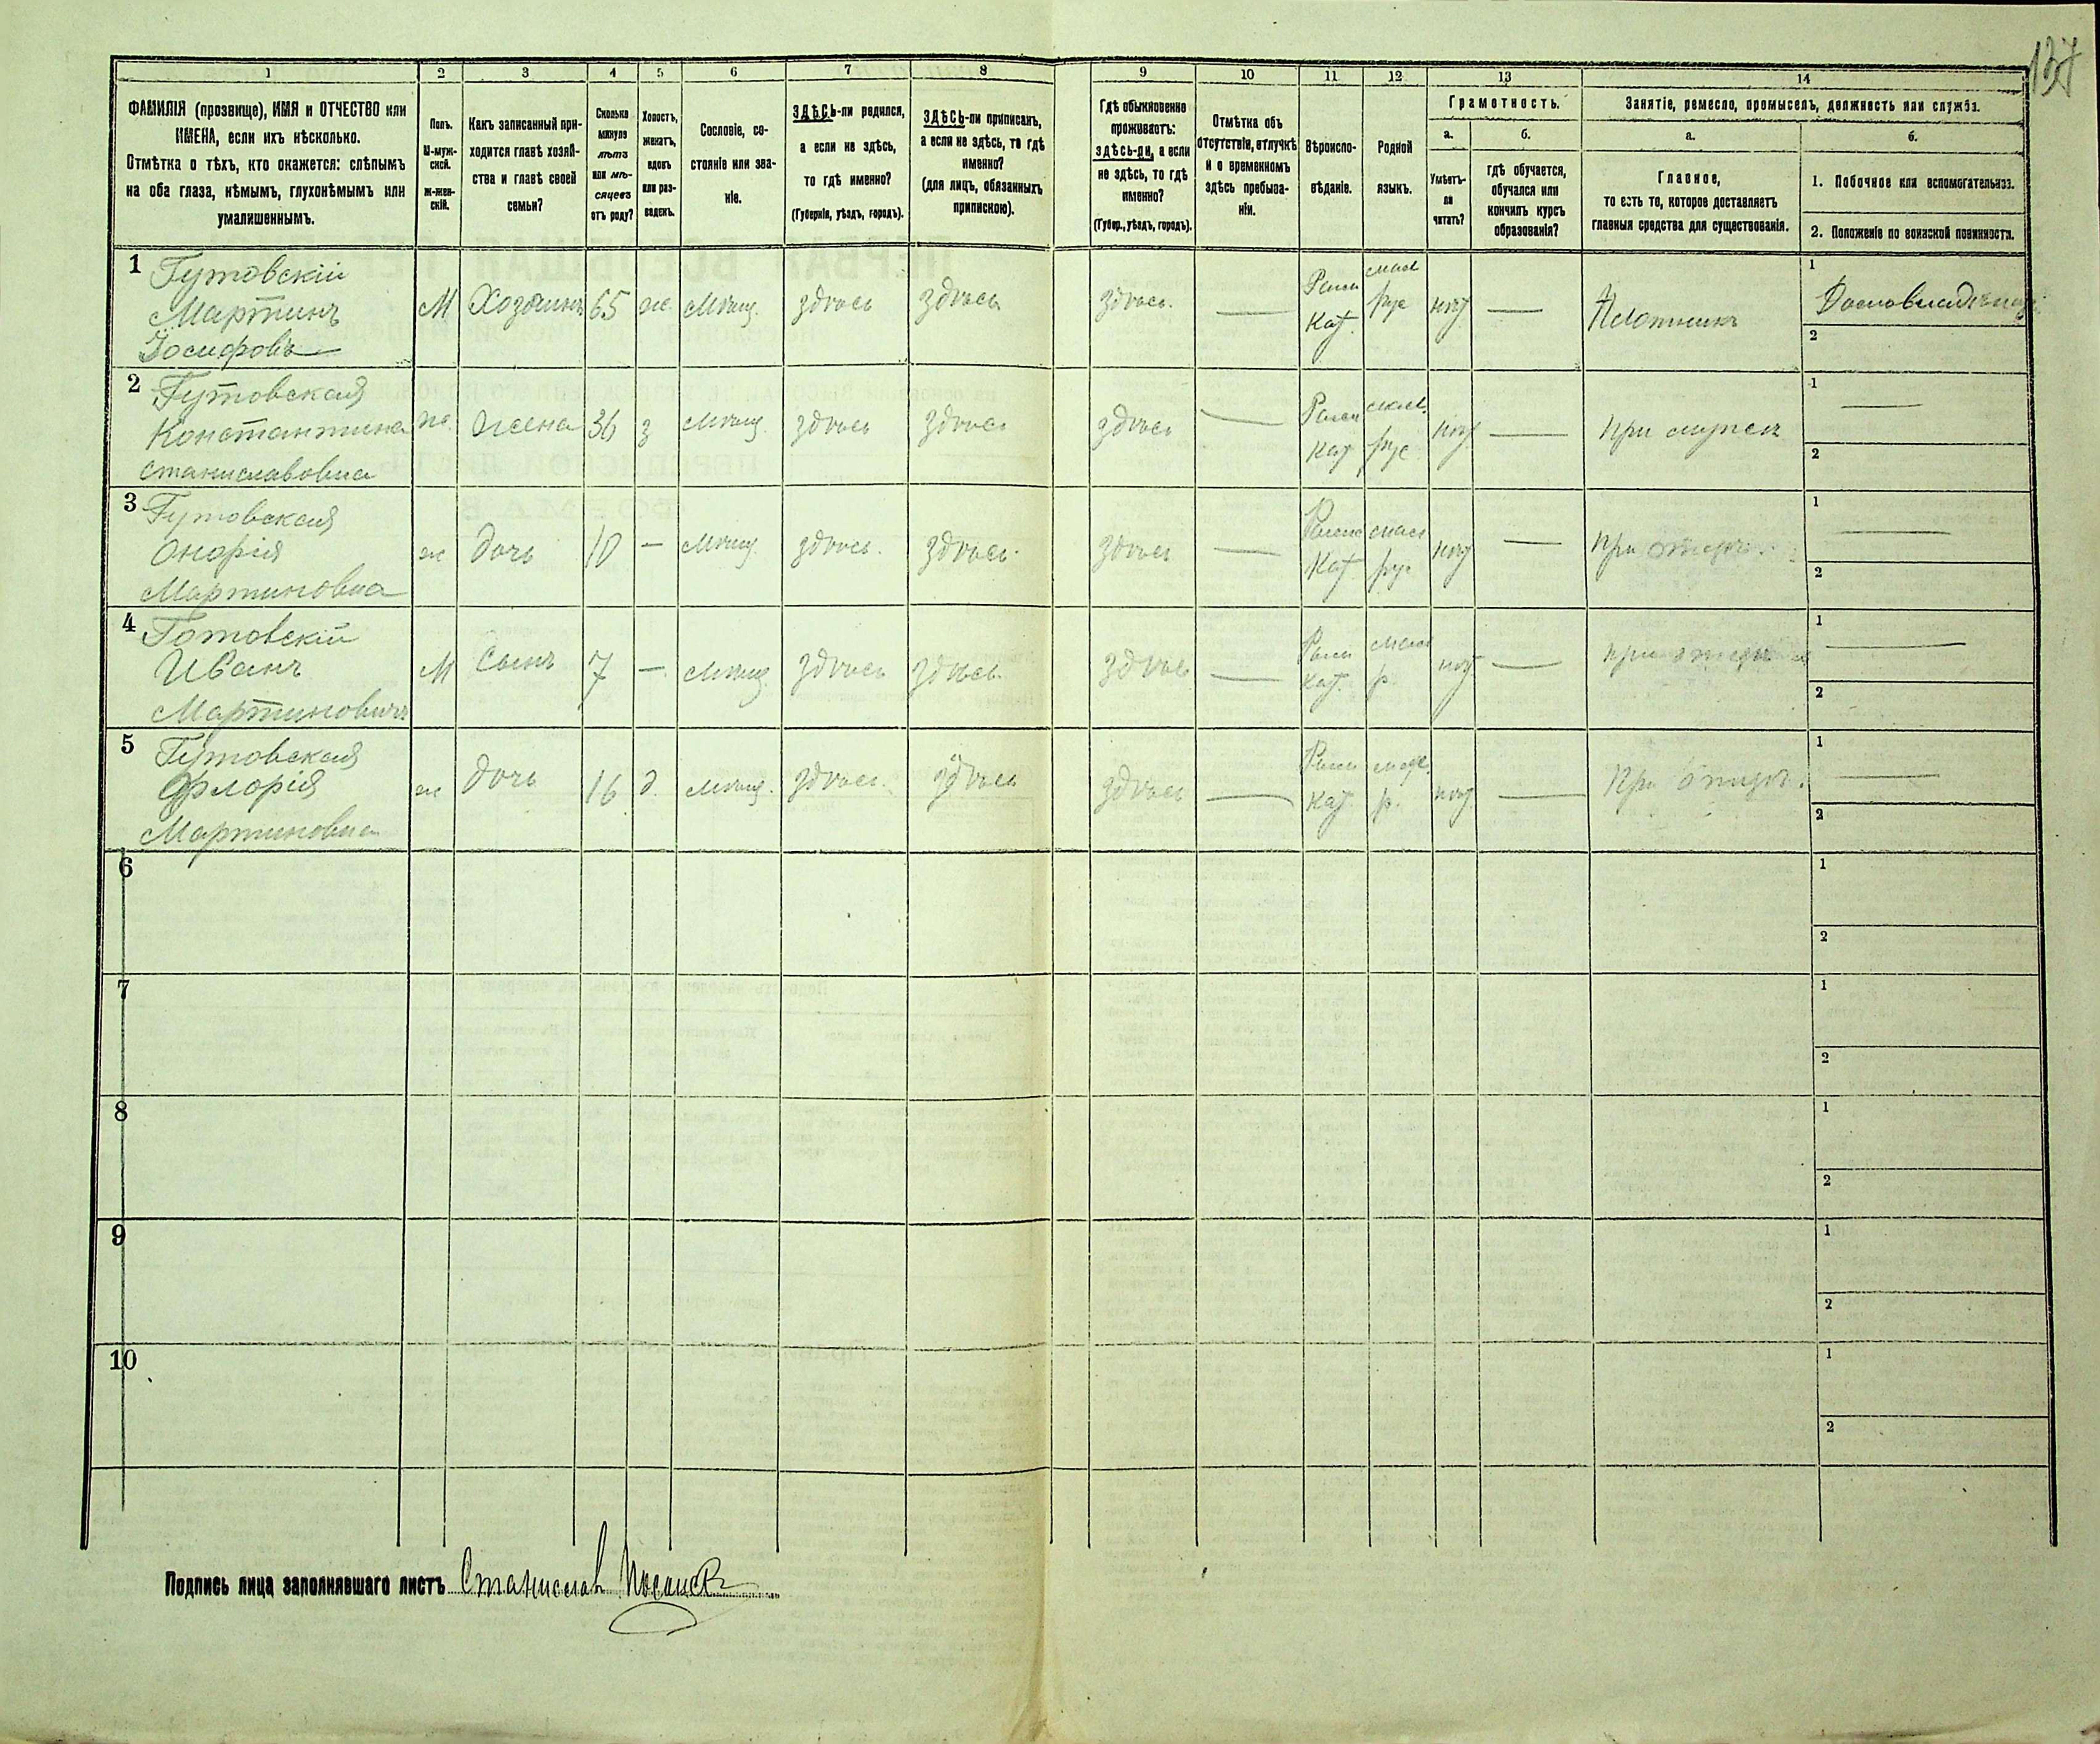 137
1
2
3
4
5
6
7
8
9
10
11
12
13
14
ФАМИЛІЯ (прозвище), ИМЯ и ОТЧЕСТВО или
ИМЕНА, если ихъ нѣсколько.
Отмѣтка о тѣхъ, кто окажется: слѣпымъ
на оба глаза, нѣмымъ, глухонѣмымъ или
умалишеннымъ.
Полъ.
М-муж-
ской.
ж-жен-
скій.
Какъ записанный при-
ходится главѣ хозяй-
ства и главѣ своей
семьи?
Сколько
минуло
лѣтъ
или мѣ-
сяцевъ
отъ роду?
Холостъ,
женатъ,
вдовъ
или раз-
веденъ.
Сословіе, со-
стояніе или зва-
ніе.
ЗДѢСЬ-ли родился,
а если не здѣсь,
то гдѣ именно?
(Губернія, уѣздъ, городъ).
ЗДѢСЬ-ли приписанъ,
а если не здѣсь, то гдѣ
именно?
(для лицъ, обязанныхъ
припискою).
Гдѣ обыкновенно
проживаетъ:
здѣсь-ли, а если
не здѣсь, то гдѣ
именно?
(Губер., уѣздъ, городъ).
Отмѣтка объ
отсутствіи, отлучкѣ
и о временномъ
здѣсь пребыва-
ніи.
Вѣроиспо-
вѣданіе.
Родной
языкъ.
Грамотность.
а.
Умѣетъ-
ли
читать?
б.
гдѣ обучается,
обучался или
кончилъ курсъ
образованія?
Занятіе, ремесло, промыселъ, должность или служба.
а.
Главное,
то есть то, которое доставляетъ
главныя средства для существованія.
б.
1. Побочное или вспомогательное.
2. Положеніе по воинской повинности.
1 Гутовскій
Мартинъ
Іосифовъ
М Хозяинъ 65 ж. Мѣщ. здѣсь здѣсь здѣсь. — Римск Кат. рус нѣт — Плотникъ
1 Домовладѣлец
2
2 Гутовская
Константина
Станиславовна
ж. жена 36 з Мѣщ. здѣсь здѣсь здѣсь — Римск Кат рус нѣт — при мужѣ
1 —
2
3 Гутовская
Онофрія
Мартиновна
ж дочь 10 — Мѣщ. здѣсь. здѣсь. здѣсь — Римск Кат рус нѣт — при отцѣ
1 —
2
4 Готовскій
Иванъ
Мартиновичъ
М Сынъ 7 — Мѣщ. здѣсь здѣсь. здѣсь — Римск Кат. р. нѣт — при отцѣ
1 —
2
5 Гутовская
Флорія
Мартиновна
ж дочь 16 д. Мѣщ. здѣсь. здѣсь здѣсь — Римск Кат. р. нѣт — При отцѣ.
1 —
2
6
1
2
7
1
2
8
1
2
9
1
2
10
1
2
Подпись лица заполнявшаго листъ Станислав